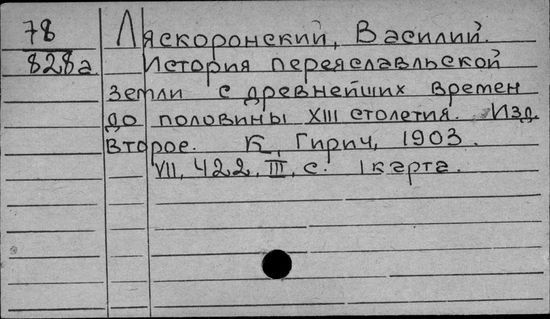 78 Ляскоронский, Василий.
828а История переяславльской
земли с древнейших времен
до половины XIII столетия. Изд.
второе. К, Гирич, 1903.
VII, 422, III, с. 1 карта.